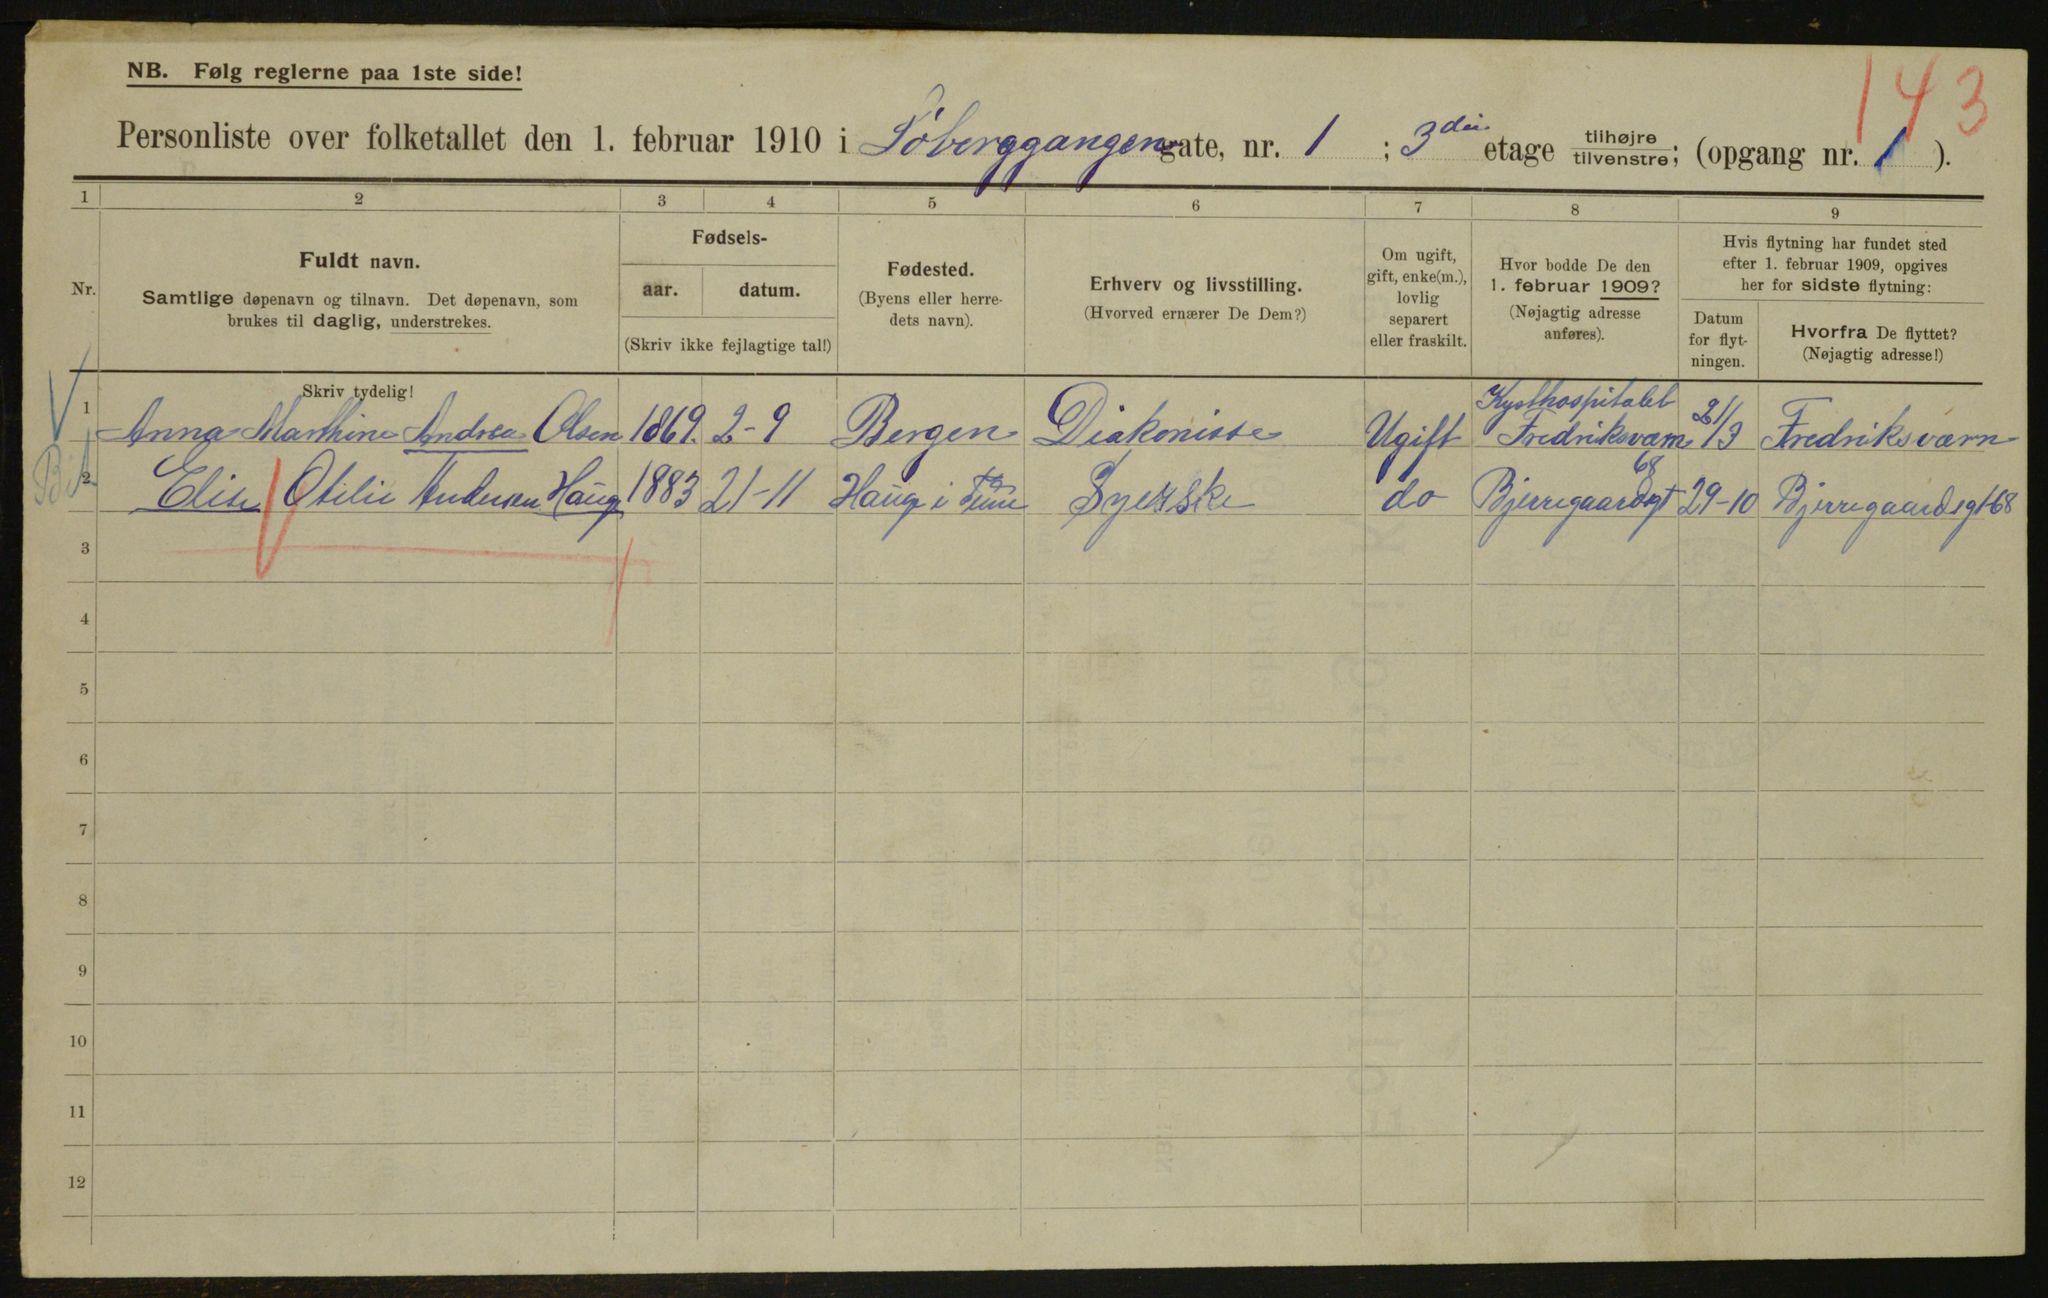 NB. Følg reglerne paa 1ste side!
143
Personliste over folketallet den 1. februar 1910 i Søberggangen gate, nr. 1 ; 3die etage tilhøjre tilvenstre; (opgang nr. 1 ).
1 2 3 4 5 6 7 8 9
Nr.
Fuldt navn.
Samtlige døpenavn og tilnavn. Det døpenavn, som
brukes til daglig, understrekes.
Fødsels-
aar. datum.
(Skriv ikke fejlagtige tal!)
Fødested.
(Byens eller herre-
dets navn).
Erhverv og livsstilling.
(Hvorved ernærer De Dem?)
Om ugift,
gift, enke(m.),
lovlig
separert
eller fraskilt.
Hvor bodde De den
1. februar 1909?
(Nøjagtig adresse
anføres).
Hvis flytning har fundet sted
efter 1. februar 1909, opgives
her for sidste flytning:
Datum
for flyt-
ningen.
Hvorfra De flyttet?
(Nøjagtig adresse!)
Skriv tydelig!
Kysthospitalet
1 Anna Marthine Andrea Olsen 1869. 2-9 Bergen Diakonisse Ugift Fredriksværn 21/3 Fredriksværn
68
2 Elise Otilie Andersen Haug 1883 21-11 Haug i Tune Syerske do Bjerregaardsgt 29-10 Bjerregaardsgt 68
3
4
5
6
7
8
9
10
11
12